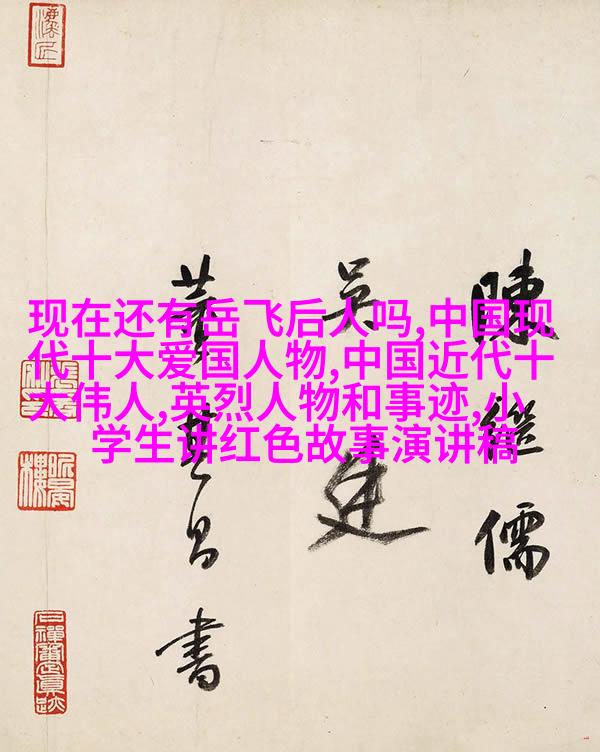 现在还有岳飞后人吗,中国现
代十大爱国人物,中国近代十
大伟人,英烈人物和事迹,小
学生讲红色故事演讲稿
陳繼儒
吴廷
董其昌書